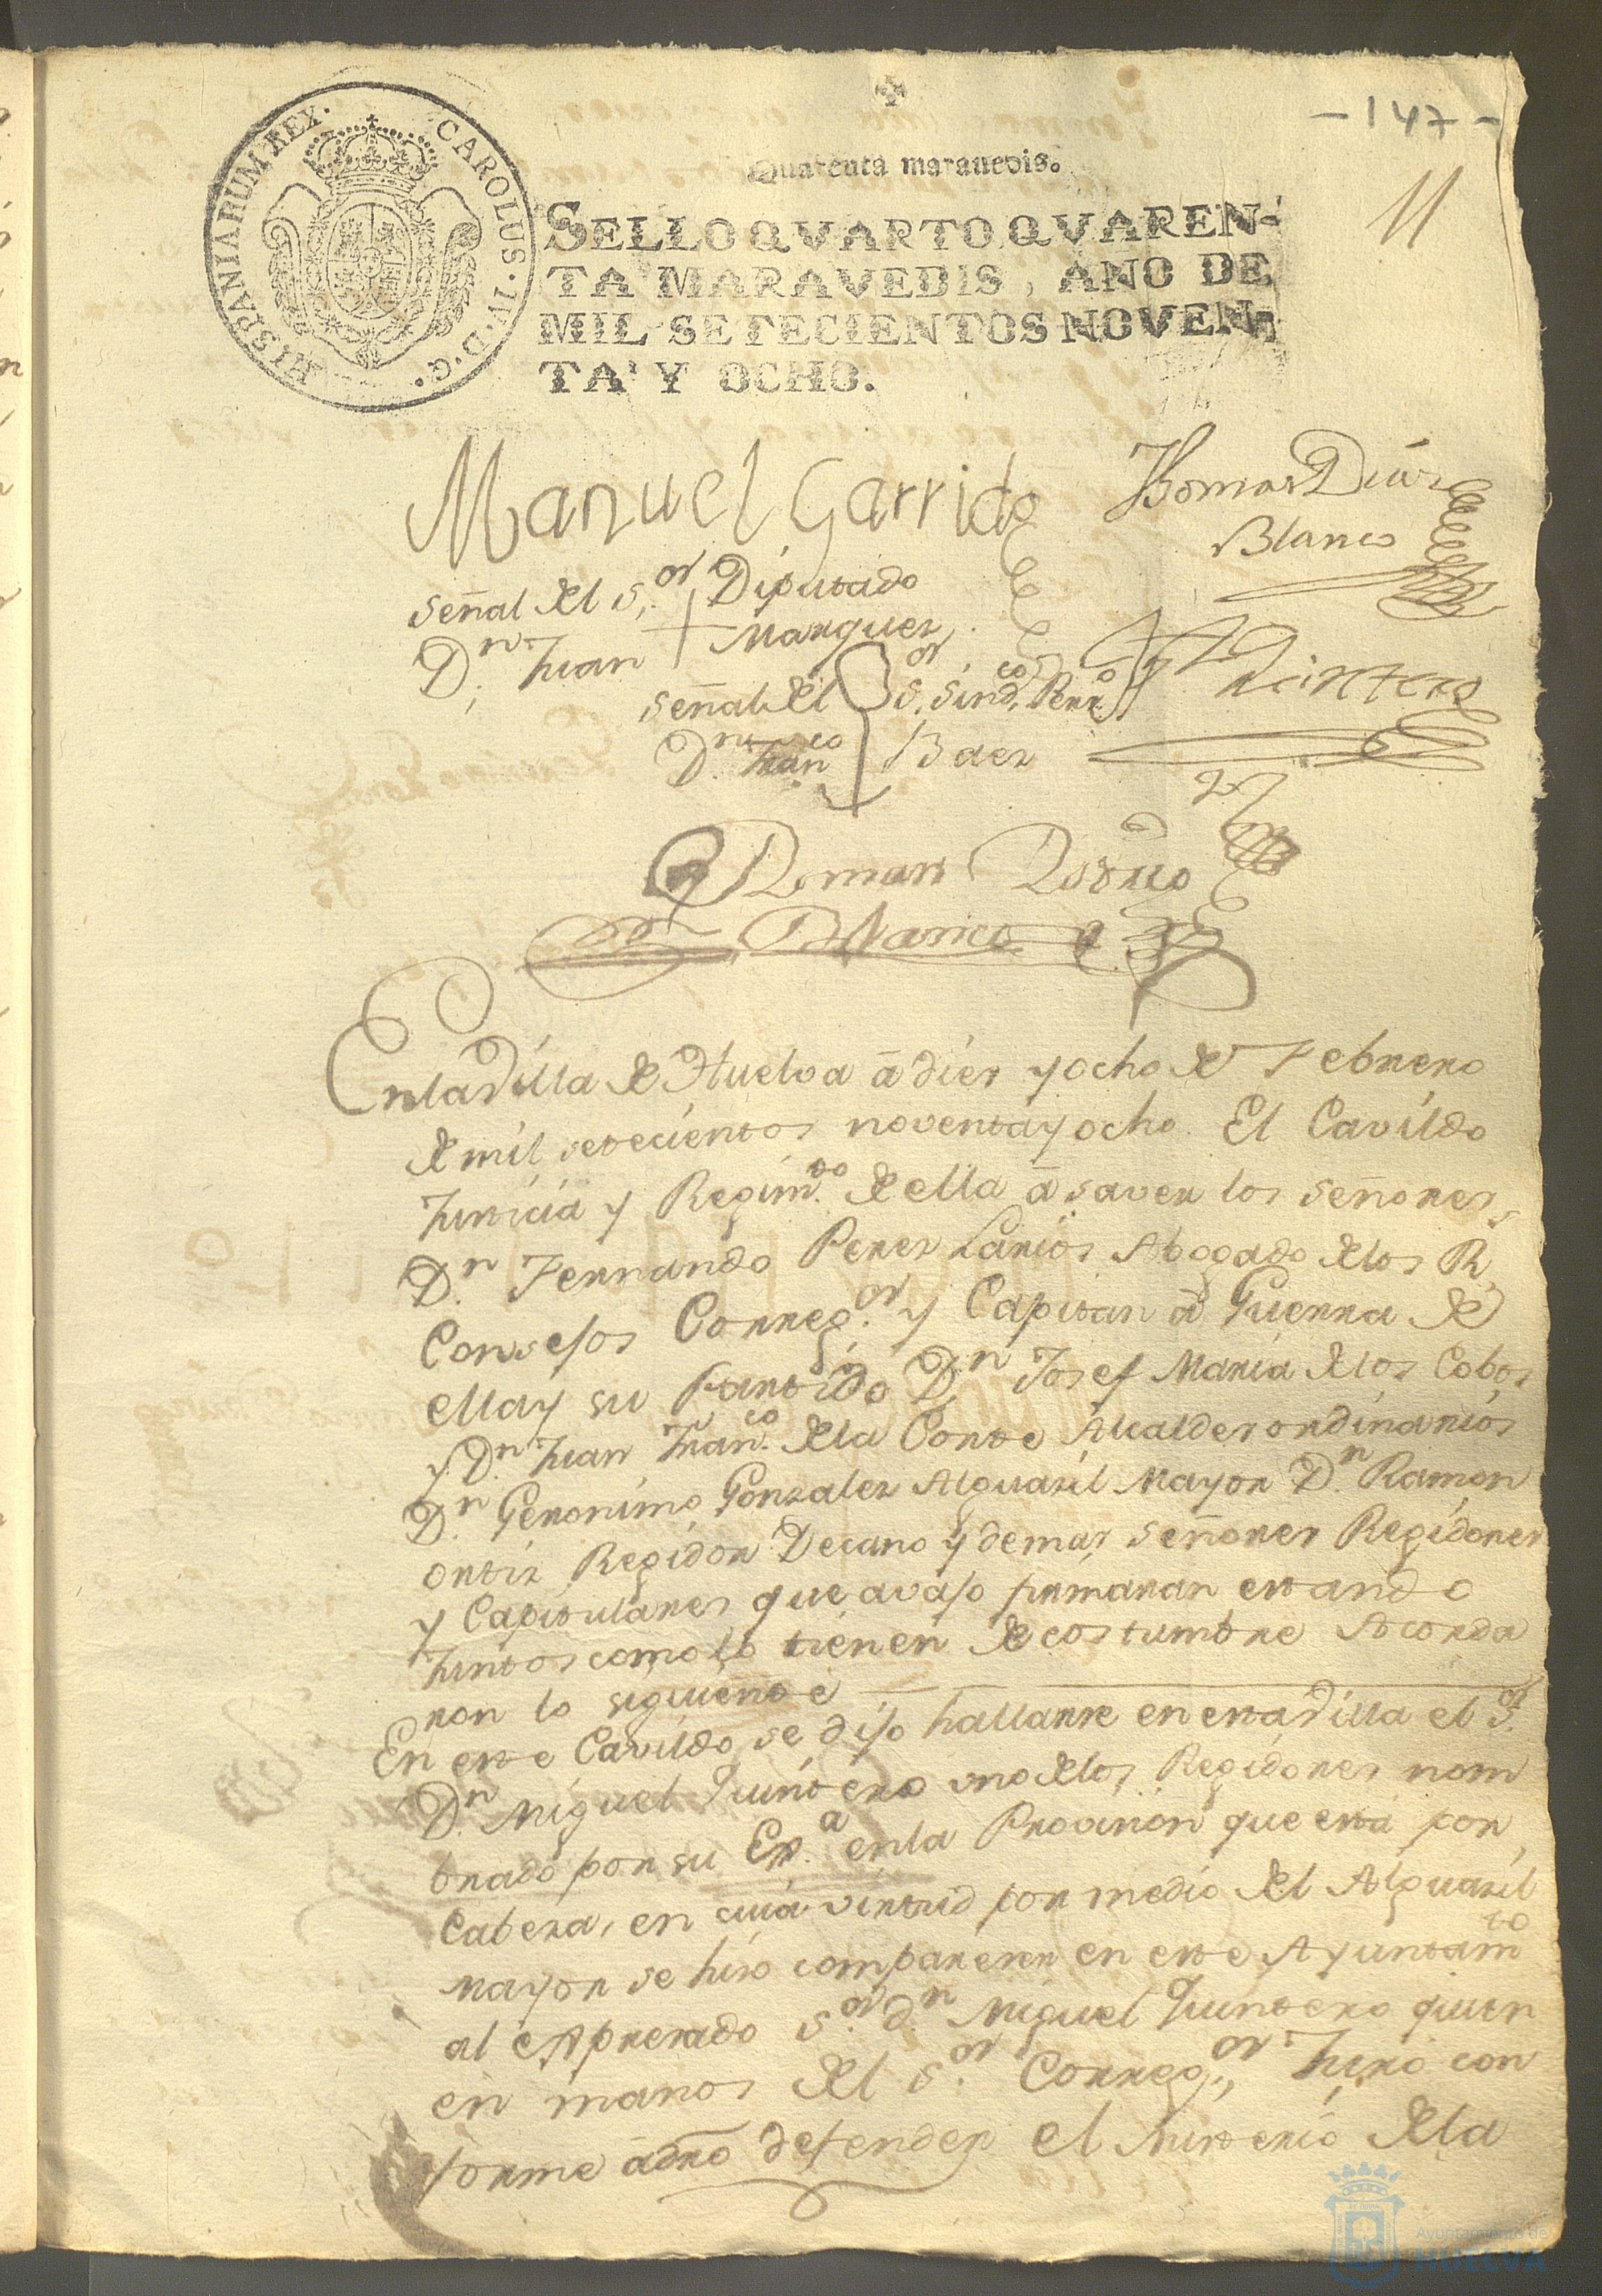 - 147 -
11
HISPANIARUM REX. CAROLUS. IV. D. G.
Quarenta maravedis.
SELLO QVARTO, QVAREN-
TA MARAVEDIS, AÑO DE
MIL SETECIENTOS NOVEN-
TA Y OCHO.
Manuel Garrido
Thomas Diaz
Blanco
señal del s.or Diputado
D.n Juan + Marquez
Quintero
señal del S.or Sind.co Perso
D.n Fran.co Baez
Roman
Blanco
En la Villa de Huelva â diez y ocho de Febrero
de mil setecientos noventa y ocho. El Cavildo
Justicia y Regim.to de ella â saver los señores
D.n Fernando Perez Larios Abogado de los R.s
Consejos Correg.or y Capitan â Guerra de
ella y su Partido D.n Josef Maria de los Cobos
y D.n Juan Fran.co de la Corte Alcaldes ordinarios
D.n Geronimo Gonzalez Alguazil Mayor D.n Ramon
ortiz Regidor Decano y demas señores Regidores
y Capitulares que avajo firmaran estando
Juntos como lo tienen de costumbre Acorda
ron lo siguiente
En este Cavildo se dijo hallarse en esta Villa el S.or
D.n Miguel Quintero uno de los Regidores nom
brado por su Ex.a en la Provision que está por
Cabeza, en cuia virtud por medio del Alguazil
Mayor se hizo comparezer en este Ayuntam.to
al expresado s.or d.n Miguel Quintero quien
en manos del s.or Correg.or Juró con
forme âdro defender el Misterio de la
Ayuntamiento de
HUELVA